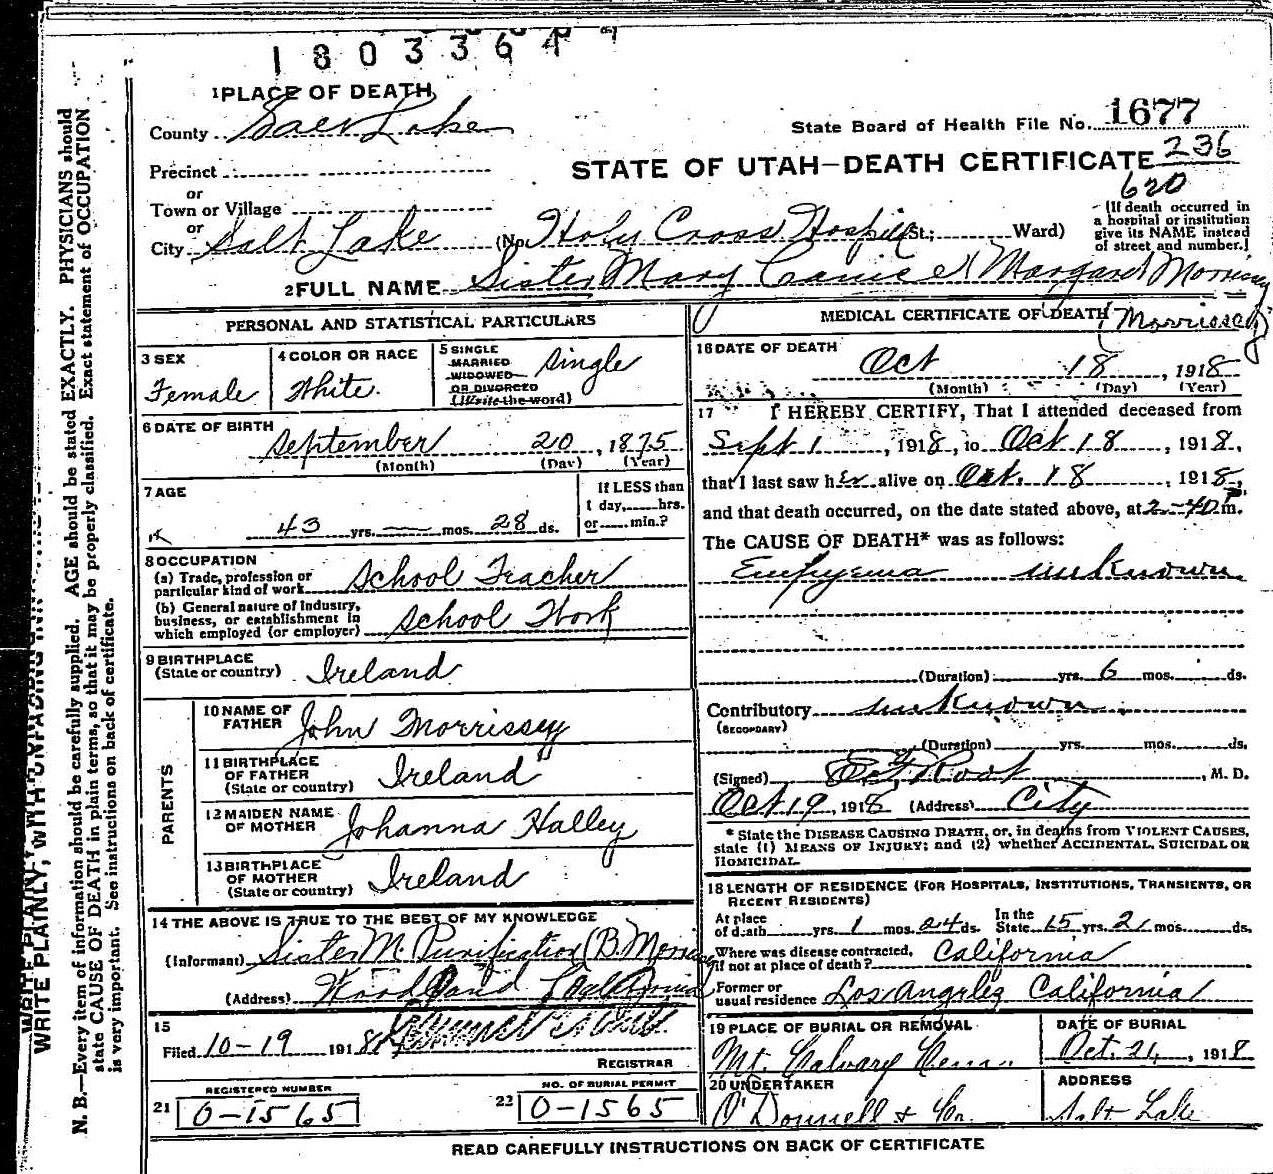 1803364
1 PLACE OF DEATH
County Salt Lake
State Board of Health File No. 1677
Precinct
STATE OF UTAH—DEATH CERTIFICATE 236
620
or
Town or Village
or
City Salt Lake (No. Holy Cross Hospital St.; Ward)
(If death occurred in
a hospital or institution
give its NAME instead
of street and number.)
2 FULL NAME Sister Mary (Margaret Morrissey
(Morrissey)
PERSONAL AND STATISTICAL PARTICULARS
3 SEX
Female
4 COLOR OR RACE
White.
5 SINGLE
MARRIED
WIDOWED
OR DIVORCED
(Write the word)
Single
6 DATE OF BIRTH
September 20, 1875
(Month) (Day) (Year)
7 AGE
43 yrs. — mos. 28 ds.
If LESS than
1 day, hrs.
or min.?
8 OCCUPATION
(a) Trade, profession or
particular kind of work School Teacher
(b) General nature of Industry,
business, or establishment in
which employed (or employer) School Work
9 BIRTHPLACE
(State or country) Ireland
PARENTS
10 NAME OF
FATHER John Morrissey
11 BIRTHPLACE
OF FATHER
(State or country) Ireland
12 MAIDEN NAME
OF MOTHER Johanna Halley
13 BIRTHPLACE
OF MOTHER
(State or country) Ireland
14 THE ABOVE IS TRUE TO THE BEST OF MY KNOWLEDGE
(Informant) Sister M. Purification (B. Morrissey
(Address) Woodland California
15
Filed 10-19 1918
REGISTRAR
REGISTERED NUMBER
21 0-1565
NO. OF BURIAL PERMIT
22 0-1565
MEDICAL CERTIFICATE OF DEATH
16 DATE OF DEATH
Oct 18, 1918
(Month) (Day) (Year)
17 I HEREBY CERTIFY, That I attended deceased from
Sept 1, 1918, to Oct 18, 1918,
that I last saw her alive on Oct. 18, 1918,
and that death occurred, on the date stated above, at 2-40 P. m.
The CAUSE OF DEATH* was as follows:
Empyema unknown
(Duration) yrs. 6 mos. ds.
Contributory unknown.
(SECONDARY)
(Duration) yrs. mos. ds.
(Signed) Root, M. D.
Oct 19, 1918 (Address) City
* State the DISEASE CAUSING DEATH, or, in deaths from VIOLENT CAUSES,
state (1) MEANS OF INJURY; and (2) whether ACCIDENTAL, SUICIDAL OR
HOMICIDAL.
18 LENGTH OF RESIDENCE (FOR HOSPITALS, INSTITUTIONS, TRANSIENTS, OR
RECENT RESIDENTS)
At place
of death yrs. 1 mos. 24 ds.
In the
State 15 yrs. 21 mos. ds.
Where was disease contracted,
if not at place of death? California
Former or
usual residence Los Angeles California
19 PLACE OF BURIAL OR REMOVAL
Mt. Calvary Cem.
DATE OF BURIAL
Oct. 21, 1918
20 UNDERTAKER
O'Donnell & Co.
ADDRESS
Salt Lake
READ CAREFULLY INSTRUCTIONS ON BACK OF CERTIFICATE
WRITE PLAINLY, WITH UNFADING INK
N. B.—Every item of information should be carefully supplied. AGE should be stated EXACTLY. PHYSICIANS should
state CAUSE OF DEATH in plain terms, so that it may be properly classified. Exact statement of OCCUPATION
is very important. See instructions on back of certificate.